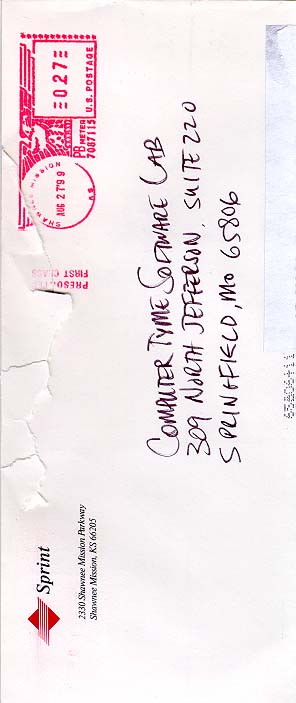 Sprint
2330 Shawnee Mission Parkway
Shawnee Mission, KS 66205
PRESORTED
FIRST CLASS
SHAWNEE MISSION KS
AUG 27'99
0.27
U.S. POSTAGE
PB METER
7087115
COMPUTER TYME SOFTWARE LAB
309 NORTH JEFFERSON, SUITE 220
SPRINGFIELD, MO 65806